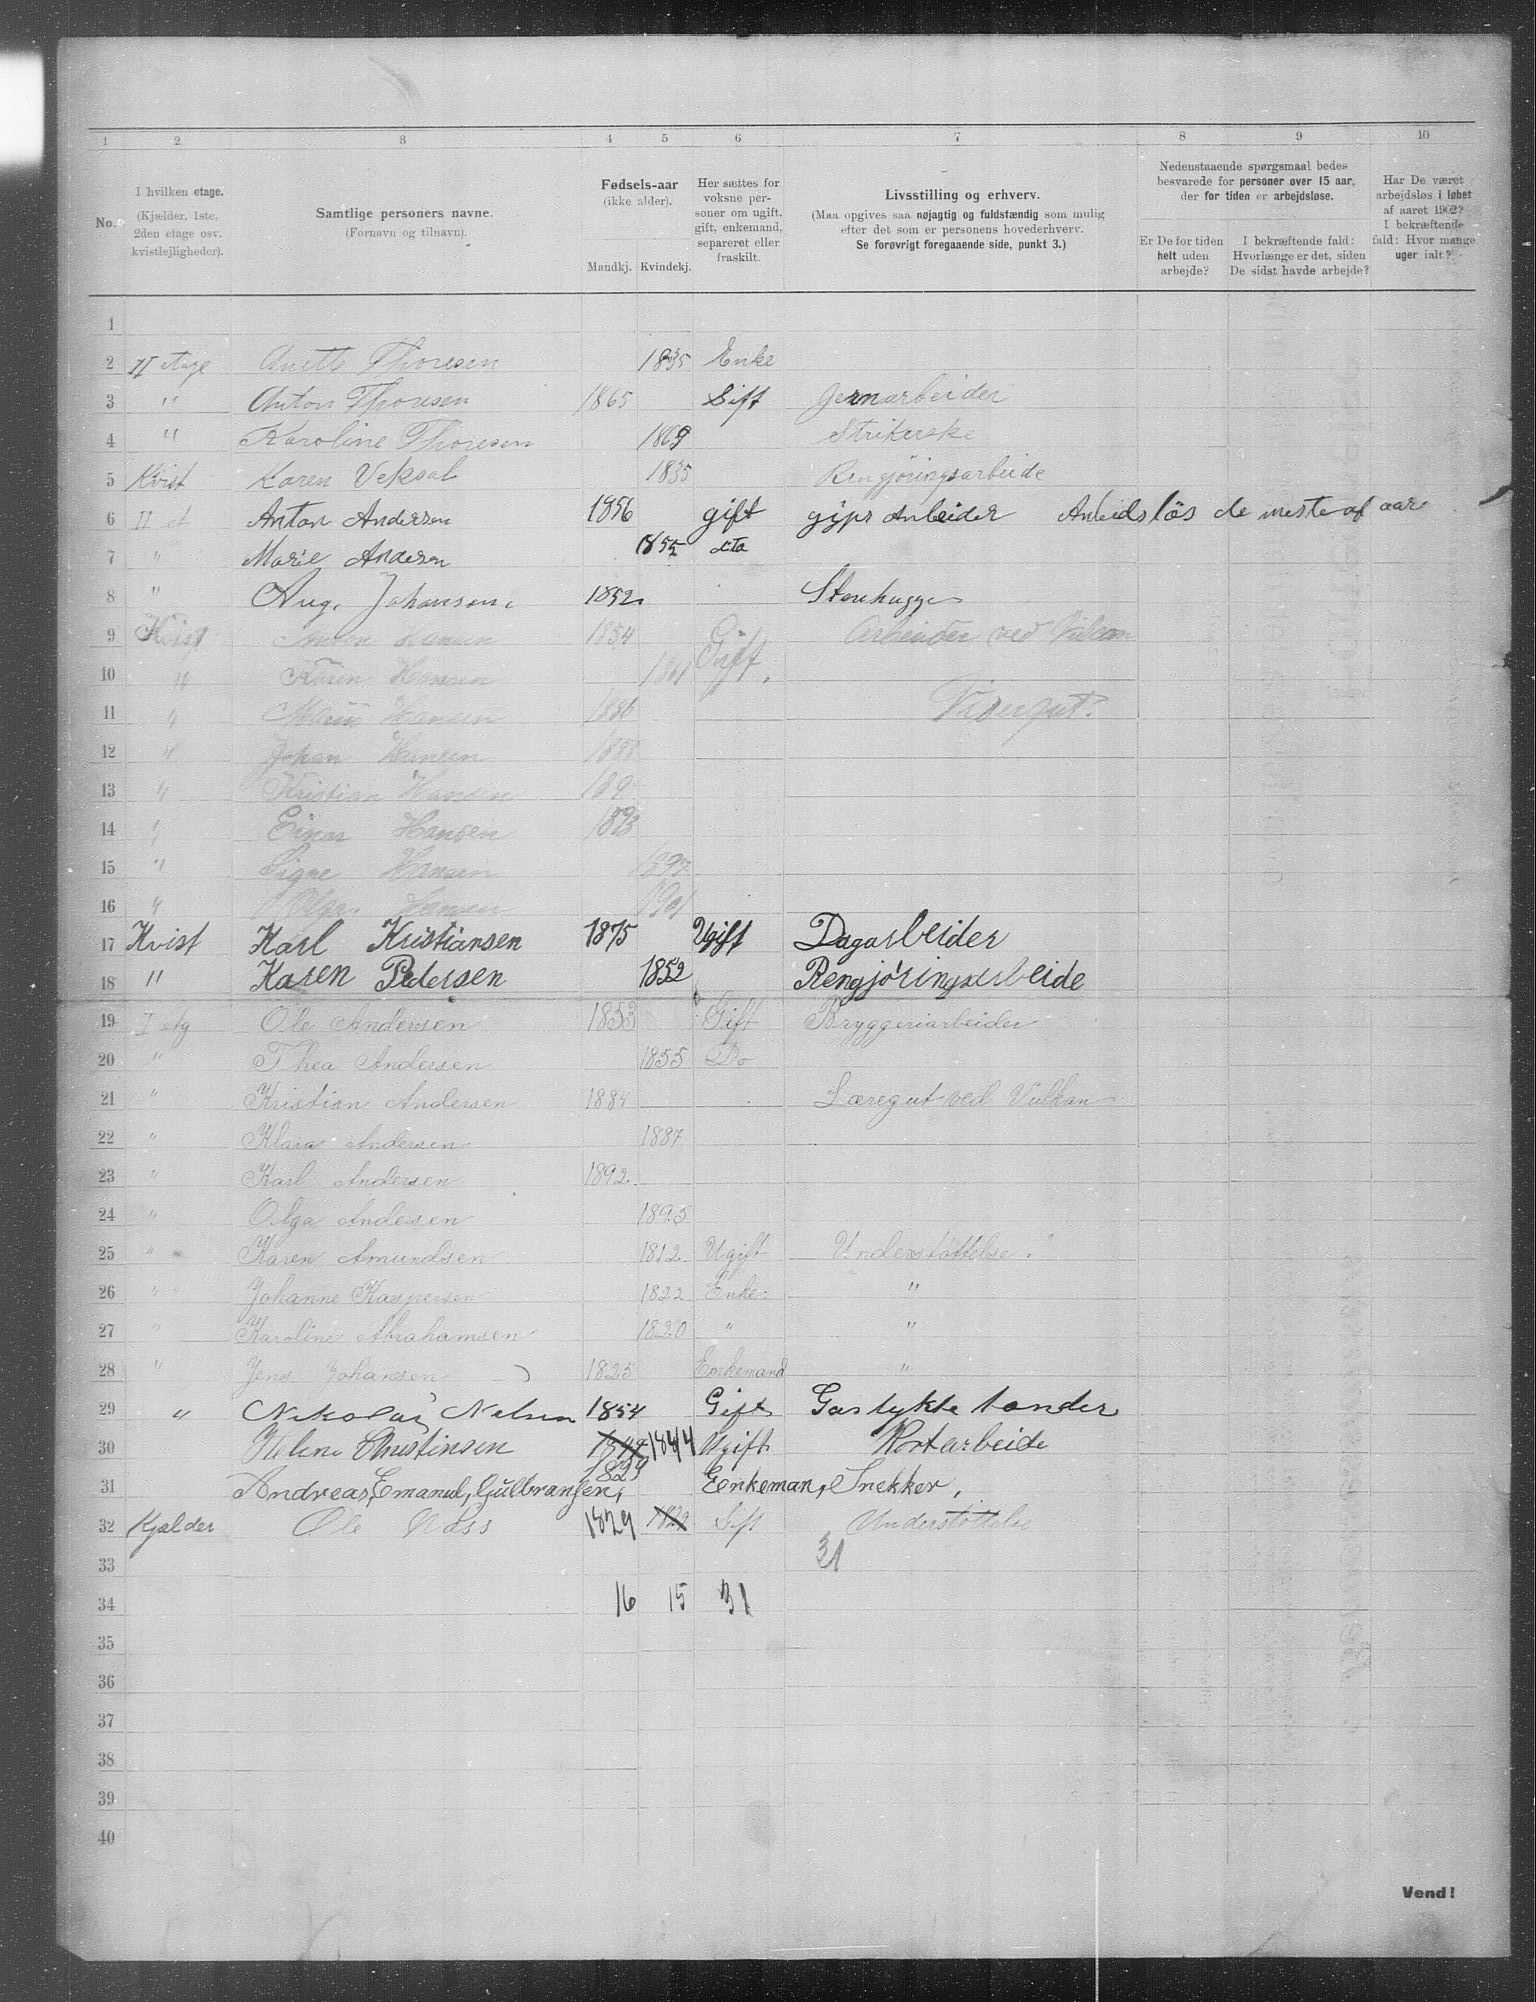 1 2 3 4 5 6 7 8 9 10
No.
I hvilken etage.
(Kjælder, 1ste,
2den etage osv.
kvistlejligheder).
Samtlige personers navne.
(Fornavn og tilnavn).
Fødsels-aar
(ikke alder).
Mandkj. Kvindekj.
Her sættes for
voksne per-
soner om ugift,
gift, enkemand,
separeret eller
fraskilt.
Livsstilling og erhverv.
(Maa opgives saa nøjagtig og fuldstændig som mulig
efter det som er personens hovederhverv.
Se forøvrigt foregaaende side, punkt 3.)
Nedenstaaende spørgsmaal bedes
besvarede for personer over 15 aar,
der for tiden er arbejdsløse.
Er De for tiden
helt uden
arbejde?
I bekræftende fald:
Hvorlænge er det, siden
De sidst havde arbejde?
Har De været
arbejdsløs i løbet
af aaret 1902?
I bekræftende
fald: Hvor mange
uger ialt?
1
2 II etage Anette Thoresen 1835 Enke
3 " Anton Thoresen 1865 Gift Jernarbeider
4 " Karoline Thoresen 1869 Strikerske
5 Kvist Karen Veksal 1835 Rengjøringsarbeide
6 II et Anton Andersen 1856 gift gips Arbeider Arbeidsløs de meste af aar
7 " Marie Andersen 1855 dto
8 " Aug. Johansen. 1852 Stenhugger
9 Kvist Hansen 1854 Gift Arbeider ved Vulcan
10 " Karen Hansen 1861 Gift.
11 " Marius Hansen 1886 Visergut.
12 " Johan Hansen 1888
13 " Kristian Hansen
14 " Einar Hansen 1893
15 " Signe Hansen 1897
16 " Olga Hansen 1901
17 Kvist Karl Kristiansen 1875 Ugift Dagarbeider
18 " Karen Pedersen 1852 Rengjøringsarbeide
19 I etg Ole Andersen 1853 Gift Bryggeriarbeider
20 " Thea Andersen 1855 Do
21 " Kristian Andersen 1884 Læregut ved Vulkan
22 " Klara Andersen 1887
23 " Karl Andersen 1892
24 " Olga Andersen 1895
25 " Karen Amundsen 1812 Ugift Understøttelse.
26 " Johanne Kaspersen 1822 Enke "
27 " Karoline Abrahamsen 1820 " "
28 " Jens Johansen 1825 Enkemand "
29 " Nikolai Nelsen 1854 Gift Gaslyktetænder
30 Helene Christinsen 1844 1844 Ugift Portarbeide
31 Andreas, Emanuel, Gulbransen, 1824 Eenkeman, Snekker,
32 Kjælder Ole Næss 1829 1829 Gift Understøttelse
33 31
34 16 15 31
35
36
37
38
39
40
Vend!